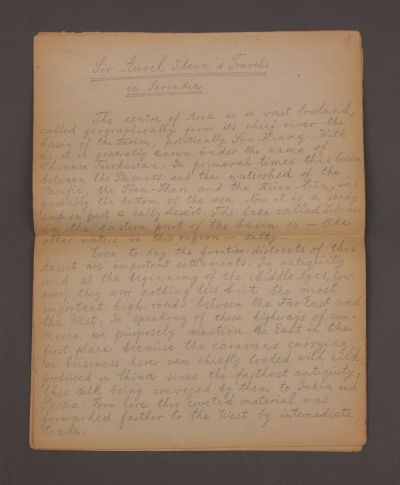 1
Ser Aurel Stein's Travels
in Serindia.
The centre of Asia is a vast lowland,
called geographically from its chief river the
basin of the Tarim, politically Sin-Kiang. With
us it is generally known under the name of
Chinese Turkistan. In primeval times this basin
between the Pamirs and the watershed of the
Pacific, the Tien-Shan and the Küen-lün, was
probably the bottom of the sea. Now it is a sandy
and in part a salty desert. The lake called Lob-nor
in the eastern part of the basin is — like
other waters in this region — salty.
Even today the frontier-districts of this
desert are important settlements. In antiquity
and at the beginning of the Middle Ages, how-
ever, they were nothing less but the most
important high roads between the Far East and
the West. In speaking of these highways of com-
merce we purposely mention the East in the
first place because the caravans carrying
on business here were chiefly loaded with silk
produced in China since the farthest antiquity,
this silk being conveyed by them to India and
Persia. From here this coveted material was
forwarded farther to the West by intermediate
trade.